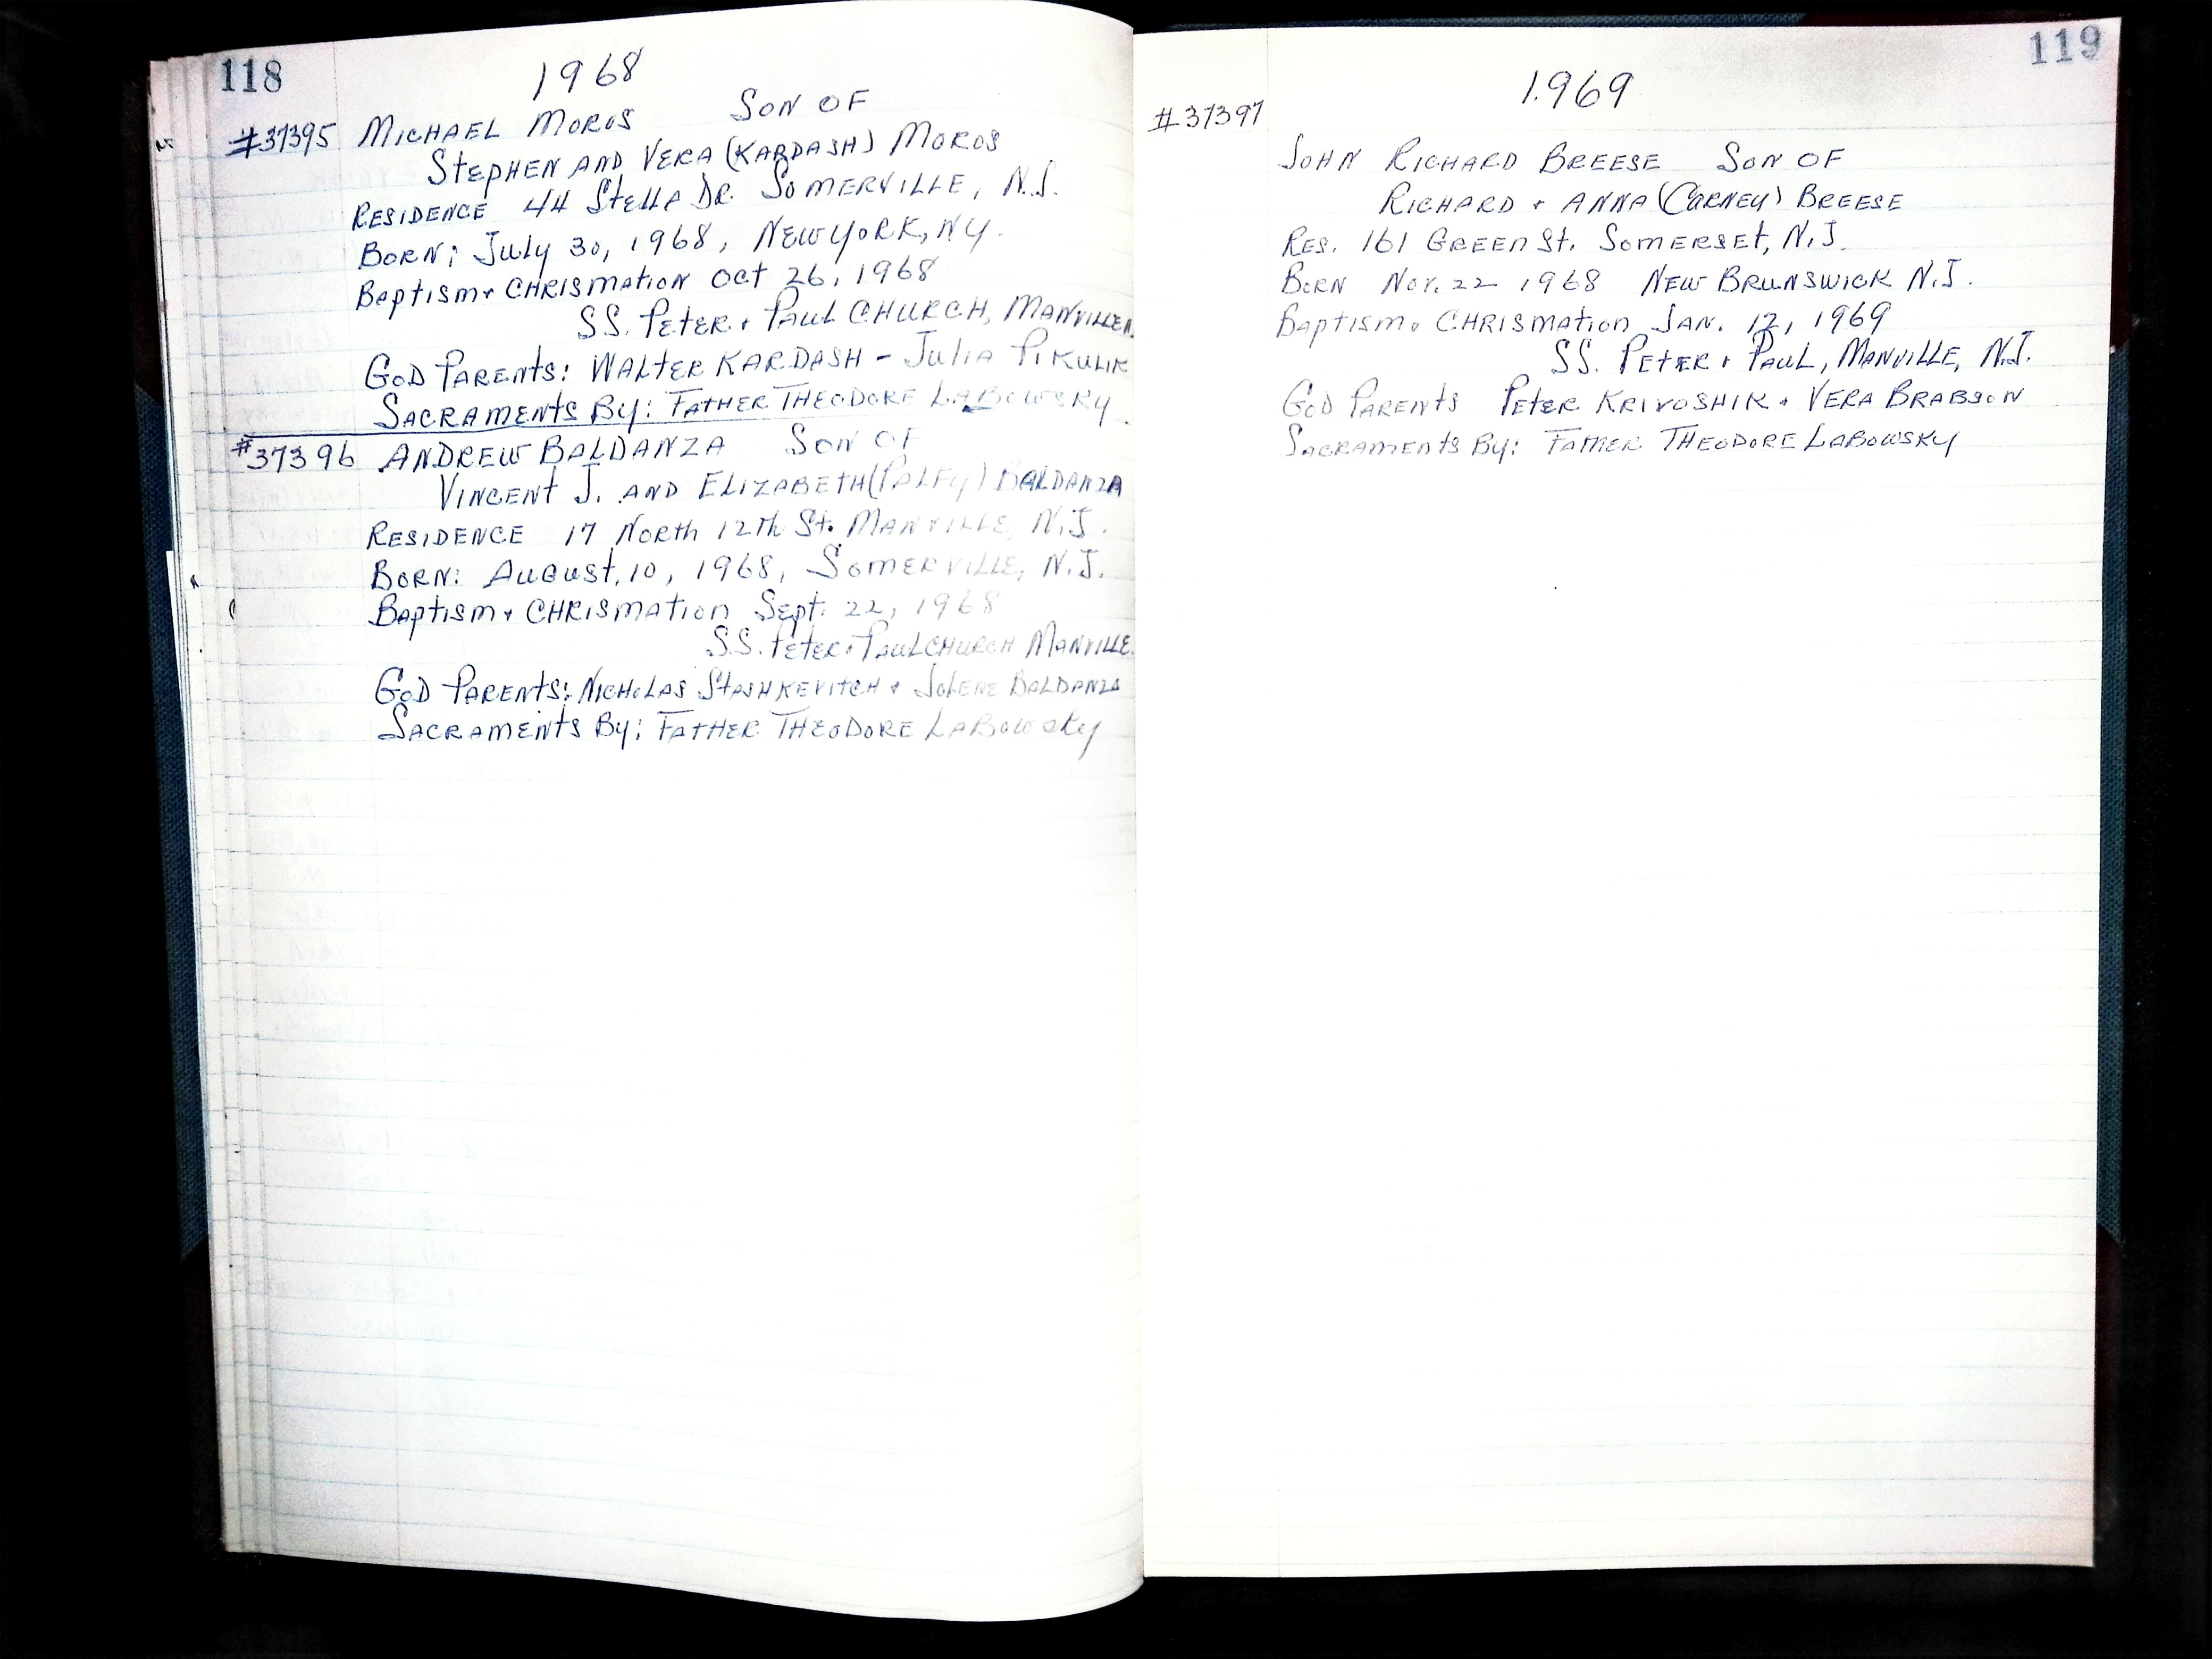 118
1968
#37395 MICHAEL MOROS SON OF
STEPHEN AND VERA (KARDASH) MOROS
RESIDENCE 44 STELLA DR. SOMERVILLE, N.J.
BORN: July 30, 1968, NEW YORK, NY.
Baptism + CHRISMATION Oct 26, 1968
SS. PETER + PAUL CHURCH, MANVILLE
GOD PARENTS: WALTER KARDASH - Julia PIKULIK
SACRAMENTS By: FATHER THEODORE LABOWSKY
#37396 ANDREW BALDANZA SON OF
VINCENT J. AND ELIZABETH (PALFY) BALDANZA
RESIDENCE 17 North 12th St. MANVILLE, N.J.
BORN: AUGUST, 10, 1968, SOMERVILLE, N.J.
Baptism + CHRISMATION Sept. 22, 1968
S.S. PETER + PAUL CHURCH MANVILLE.
GOD PARENTS: NICHOLAS STASHKEVITCH + JOLENE BALDANZA
SACRAMENTS By: FATHER THEODORE LABOWSKY
119
1969
#37397
JOHN RICHARD BREESE SON OF
RICHARD + ANNA (CARNEY) BREESE
RES. 161 GREEN St. SOMERSET, N.J.
BORN Nov. 22 1968 NEW BRUNSWICK N.J.
Baptism + CHRISMATION JAN. 12, 1969
SS. PETER + PAUL, MANVILLE, N.J.
GOD PARENTS PETER KRIVOSHIK + VERA BRABSON
SACRAMENTS By: FATHER THEODORE LABOWSKY